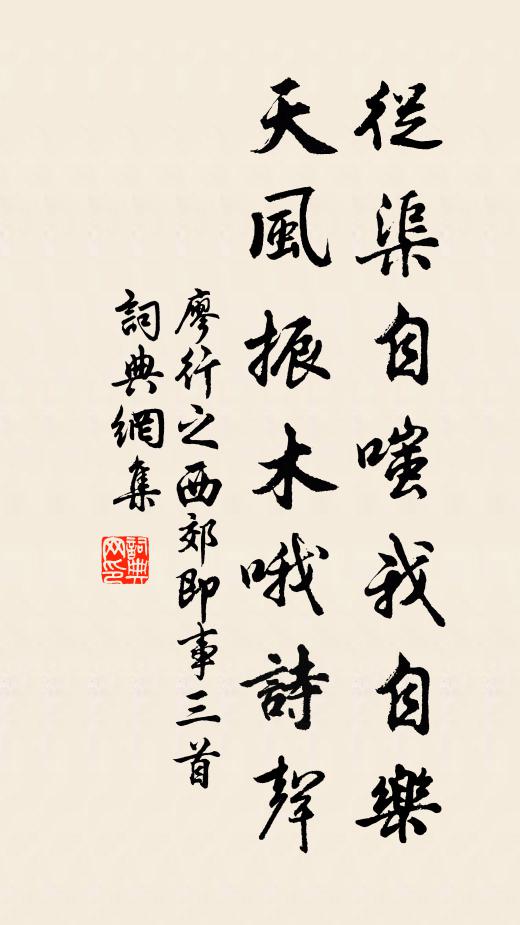 從渠自嗤我自樂
天風振木哦詩聲
廖行之西郊即事三首
詞典網集
詞典
网印